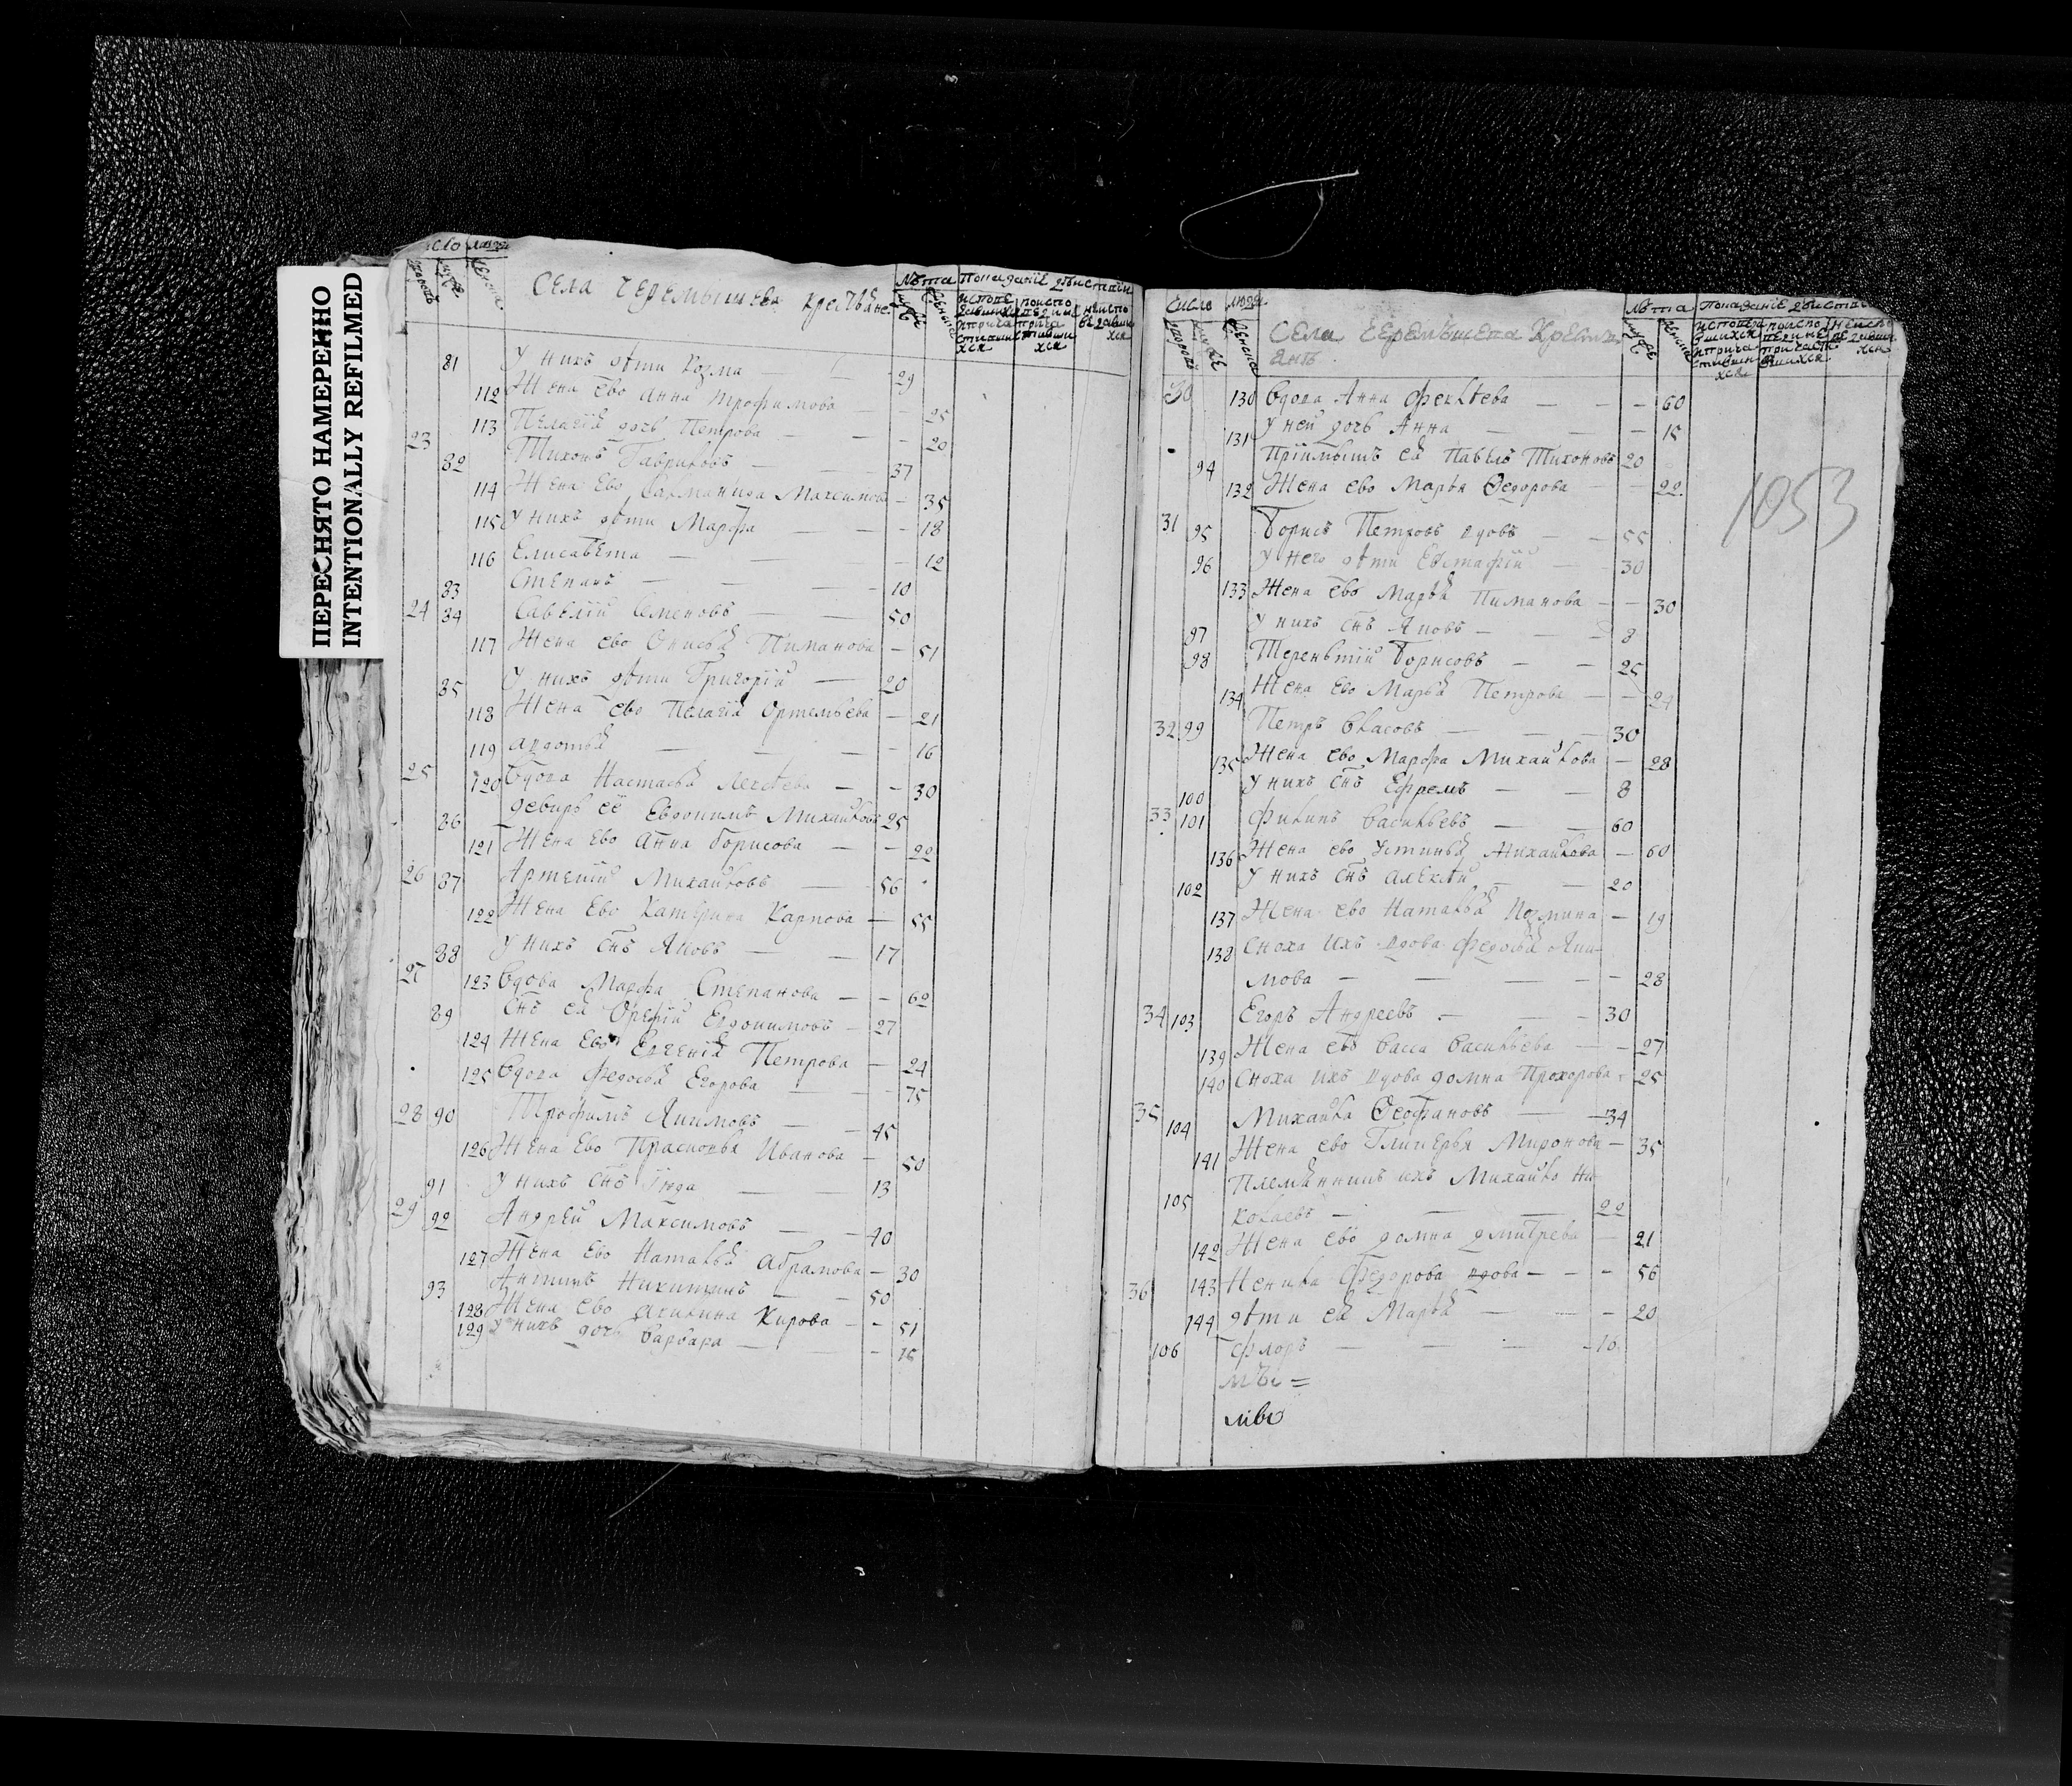 ПЕРЕСНЯТО НАМЕРЕННО
INTENTIONALLY REFILMED
Села Черемышева крестьяне
Лѣта Показание дѣйствия
81 У нихъ дѣти Козма — 29
112 Жена ево Анна Трофимова — 25
113 Пелагѣя дочь Петрова — 20
23 82 Тихонъ Гавриловъ — 37
114 Жена ево Максимова — 35
115 У нихъ дѣти Марфа — 18
116 Елисавета — 12
83 Степанъ — 10
24 84 Савелий Семеновъ — 50
117 Жена ево Онисья Пиманова — 51
85 У нихъ дѣти Григорий — 20
118 Жена ево Пелагѣя Ортемьева — 21
119 Авдотья — 16
25 120 Вдова Настасья — 30
86 деверь ее Евдокимъ Михайловъ 25
121 Жена ево Анна Борисова — 22
26 87 Артемий Михайловъ — 56
122 Жена ево Катерина Карпова — 55
88 У нихъ снъ Яковъ — 17
27 123 Вдова Марфа Степанова — 62
89 Снъ ея Орефий Евдокимовъ — 27
124 Жена ево Евгения Петрова — 24
125 Вдова Федосья Егорова — 75
28 90 Трофимъ Якимовъ — 45
126 Жена ево Прасковья Иванова — 50
91 У нихъ снъ Июда — 13
29 92 Андрей Максимовъ — 40
127 Жена ево Наталья Абрамова — 30
93 Антипъ Никитинъ — 50
128 Жена ево Акилина Кирова — 51
129 У нихъ дочь Варвара — 16
Число людей
Села Черемышева Крестьянъ
Лѣта Показание дѣйствия
30 130 Вдова Анна Фекѣева — 60
131 У ней дочь Анна — 15
94 Приимышъ ея Павелъ Тихоновъ 20
132 Жена ево Марья Федорова — 22
1053
31 95 Борисъ Петровъ вдовъ — 55
96 У него дѣти Евстафий — 30
133 Жена ево Марья Пиманова — 30
97 У нихъ снъ Яковъ — 8
98 Тереньтий Борисовъ — 25
134 Жена ево Марья Петрова — 24
32 99 Петръ Власовъ — 30
135 Жена ево Марфа Михайлова — 28
100 У нихъ снъ Ефремъ — 8
33 101 Филипъ Васильевъ — 60
136 Жена ево Устинья Михайлова — 60
102 У нихъ снъ Алексѣй — 20
137 Жена ево Наталья Козмина — 19
138 Сноха ихъ вдова Федосья Яки-
мова — 28
34 103 Егоръ Андреевъ — 30
139 Жена ево Васса Васильева — 27
140 Сноха ихъ вдова домна Прохорова — 25
35 104 Михайла Феофановъ — 34
141 Жена ево Гликерья Миронова — 35
105 Племянникъ ихъ Михайла Ни-
колаевъ — 22
142 Жена ево домна дмитрева — 21
36 143 Ненила Федорова вдова — 56
144 дѣти ея Марья — 20
106 Флоръ — 16